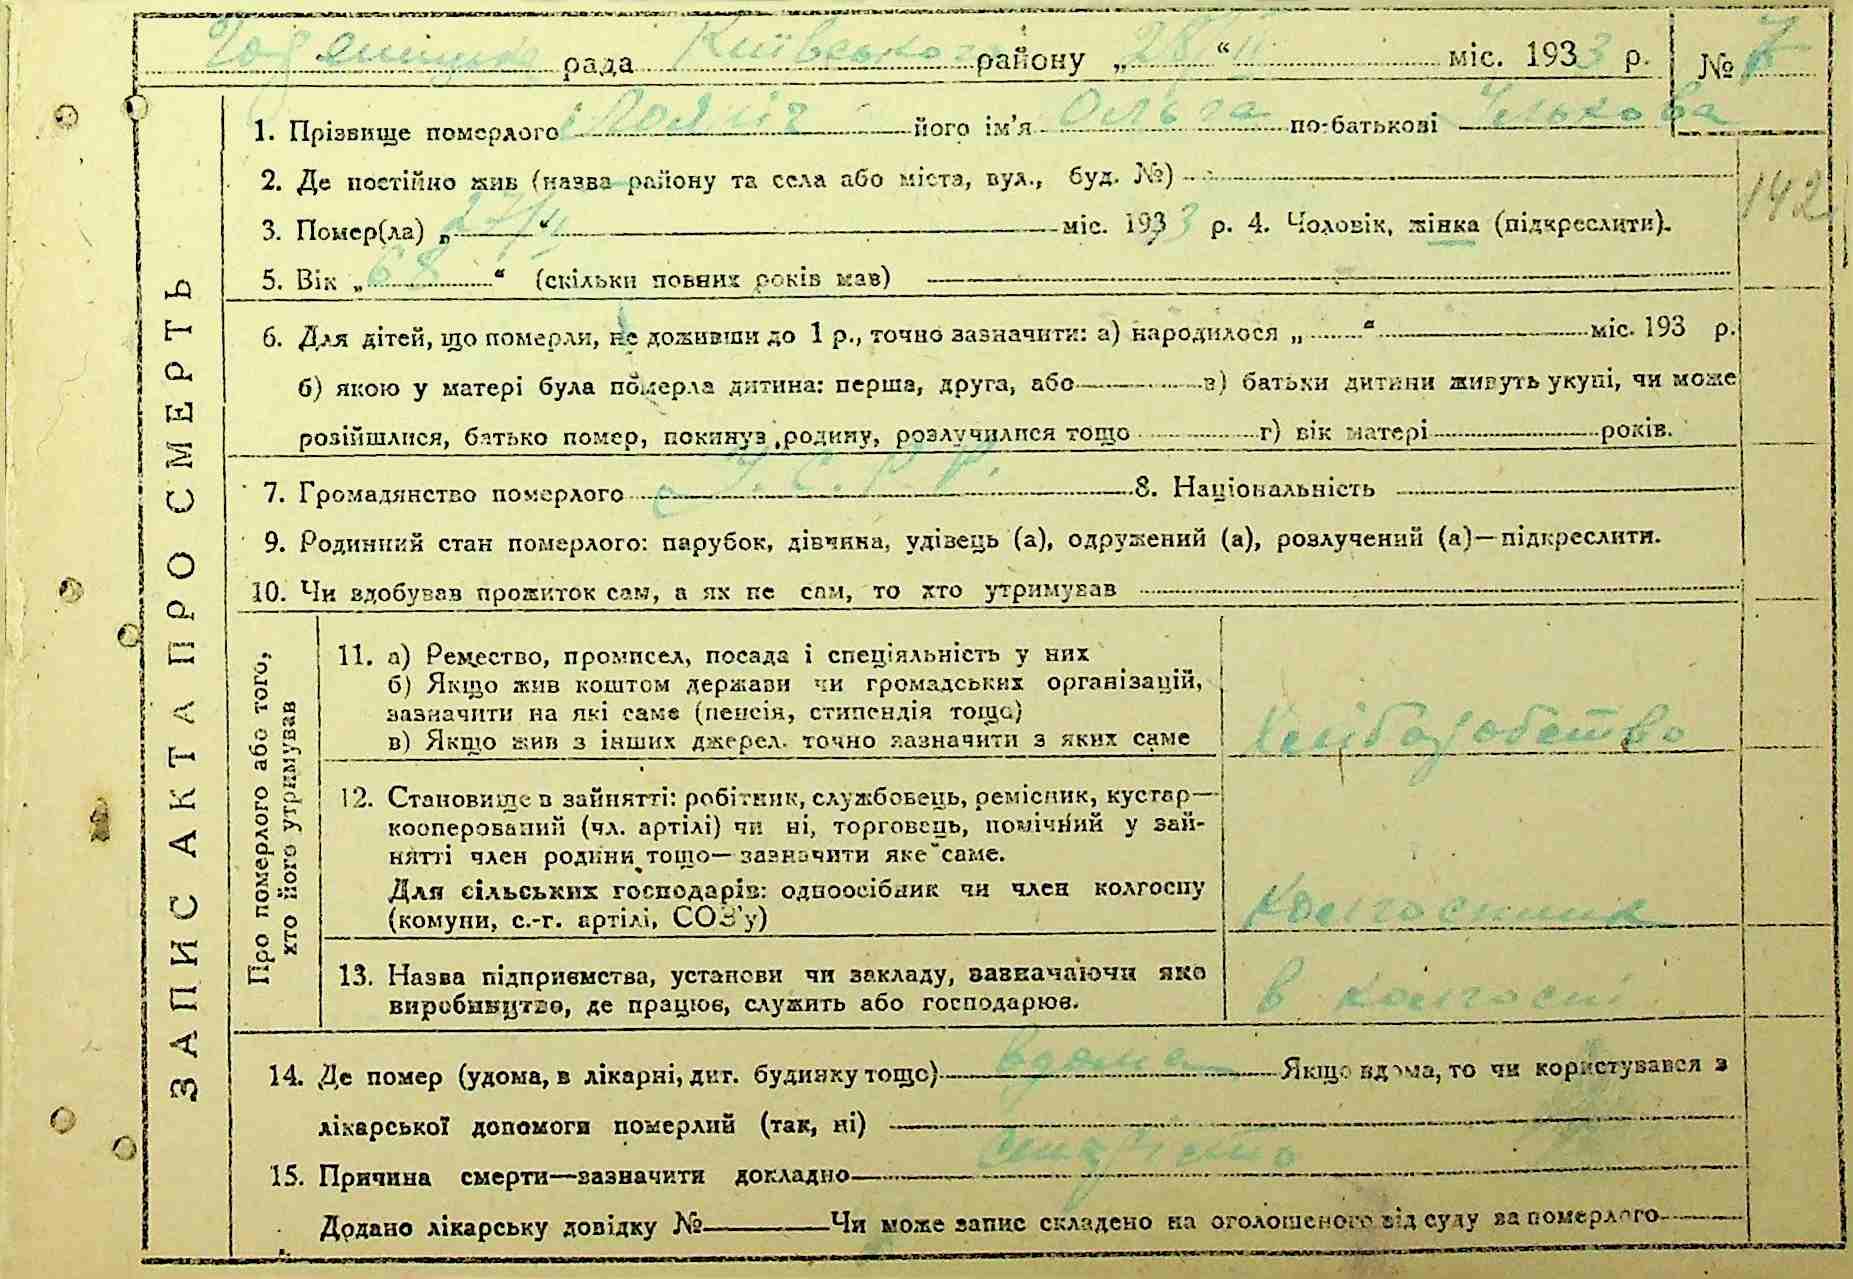 рада Київського району „28/ІІ“ міс. 1933 р. № 7
1. Прізвище померлого його ім’я Ольга по-батькові
2. Де постійно жив (назва району та села або міста, вул., буд. №)
142
3. Помер(ла) „27/ІІ“ міс. 1933 р. 4. Чоловік, жінка (підкреслити).
5. Вік „68“ (скільки повних років мав)
6. Для дітей, що померли, не доживши до 1 р., точно зазначити: а) народилося „ “ міс. 193 р.
б) якою у матері була померла дитина: перша, друга, або в) батьки дитини живуть укупі, чи може
розійшлися, батько помер, покинув родину, розлучилися тощо г) вік матері років.
7. Громадянство померлого У.С.Р.Р. 8. Національність
9. Родинний стан померлого: парубок, дівчина, удівець (а), одружений (а), розлучений (а)—підкреслити.
10. Чи здобував прожиток сам, а як не сам, то хто утримував
ЗАПИС АКТА ПРО СМЕРТЬ
Про померлого або того,
хто його утримував
11. а) Ремество, промисел, посада і спеціяльність у них
б) Якщо жив коштом держави чи громадських організацій,
зазначити на які саме (пенсія, стипендія тощо)
в) Якщо жив з інших джерел, точно зазначити з яких саме
Хліборобство
12. Становище в зайнятті: робітник, службовець, ремісник, кустар—
кооперований (чл. артілі) чи ні, торговець, помічний у зай-
нятті член родини тощо—зазначити яке саме.
Для сільських господарів: одноосібник чи член колгоспу
(комуни, с.-г. артілі, СОЗ’у)
колгоспник
13. Назва підприємства, установи чи закладу, зазначаючи яко
виробництво, де працює, служить або господарює.
в колгоспі
14. Де помер (удома, в лікарні, дит. будинку тощо) вдома Якщо вдома, то чи користувався з
лікарської допомоги померлий (так, ні)
15. Причина смерти—зазначити докладно
Додано лікарську довідку № Чи може запис складено на оголошеного від суду за померлого